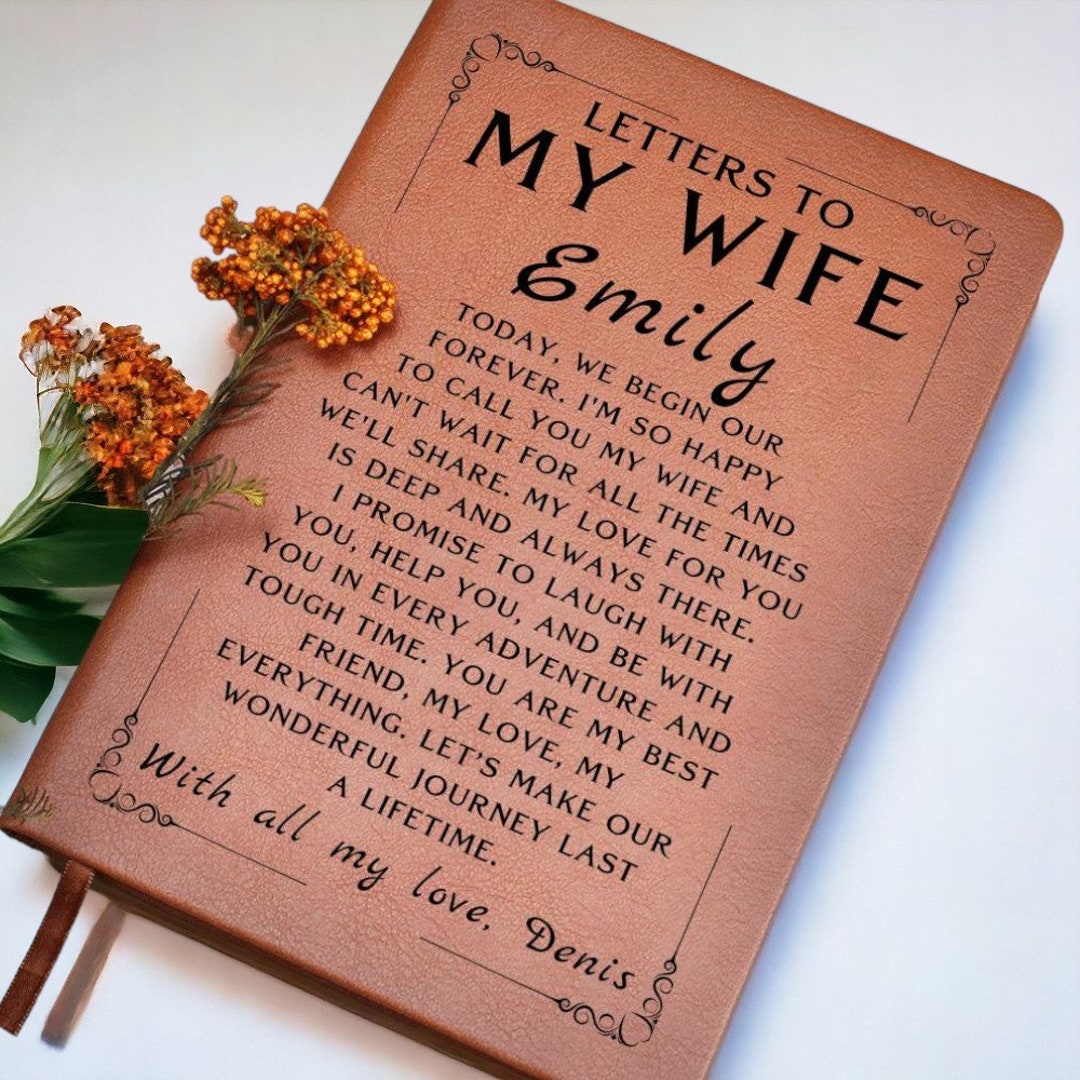 LETTERS TO
MY WIFE
Emily
TODAY, WE BEGIN OUR
FOREVER. I'M SO HAPPY
TO CALL YOU MY WIFE AND
CAN'T WAIT FOR ALL THE TIMES
WE'LL SHARE. MY LOVE FOR YOU
IS DEEP AND ALWAYS THERE.
I PROMISE TO LAUGH WITH
YOU, HELP YOU, AND BE WITH
YOU IN EVERY ADVENTURE AND
TOUGH TIME. YOU ARE MY BEST
FRIEND, MY LOVE, MY
EVERYTHING. LET'S MAKE OUR
WONDERFUL JOURNEY LAST
A LIFETIME.
With all my love, Denis